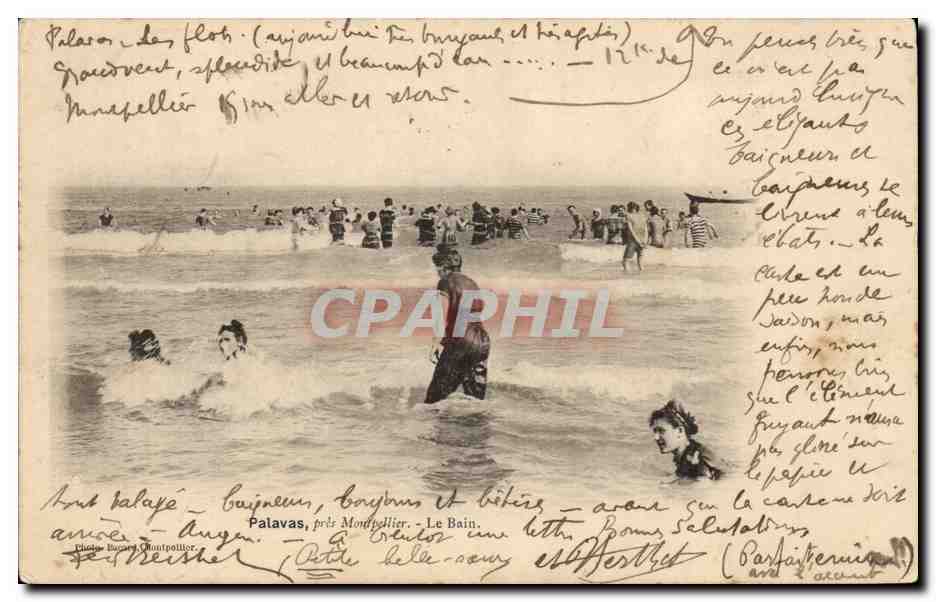 Palavas - Les flots. (aujourd'hui très bruyants et très agités)
Grand vent, splendide, et beaucoup d'eau ..... - 12 K. de
Montpellier 15 sous aller et retour.
On pense bien que
ce n'est pas
aujourd'hui que
ces élégants
baigneurs et
baigneuses se
livrent à leurs
ébats. - La
carte est un
peu hors de
saison, mais
enfin, nous
pensons bien
que l'élément
fuyant n'aura
pas glissé sur
le papier et
tout balayé - baigneurs, et bêtises - avant que la carte ne soit
arrivée - - A bientôt une lettre Bonnes Salutations
Palavas, près Montpellier. - Le Bain.
Photo Montpellier.
Petite belle-sœur et Berthet (Parfait
avec l'accent
CPAPHIL